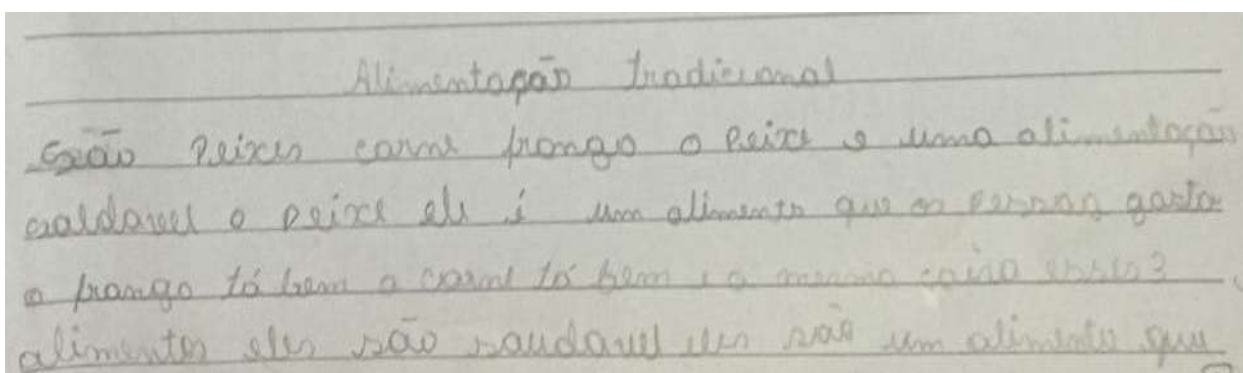 Alimentação tradicional
São Peixes carne frango o Peixe e uma alimentação
saldavel o peixe ele é um alimento que as pessoas gosta
o frango tá bem a carne tá bem e a mesma coisa esses 3
alimentos eles são saudavel eles são um alimento que